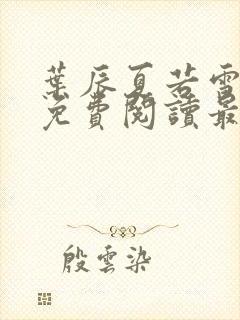 葉辰夏若雪
免費閱讀最
殷雲染